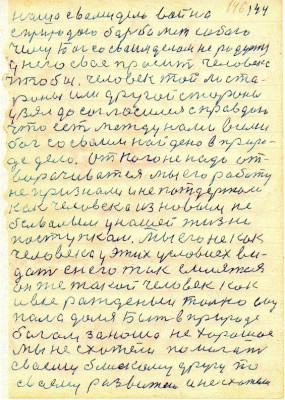 146 144
наша с вами дель война
с природою борба мет собою
чому Бог со своим делом не родитя
у него свое просит человека
чтобы. человек той и ста
роны или другой стороны
узял да согласился с правдою
что ест между нами вами
бог со своим найдено в приро-
де дело. от кого не надо от-
ворачиватся мы его работу
не признали и не потдержали
как человека из новым не
бывалым у нашей жизни
поступкам. Мы его не как
человека у этих условиех ви-
дат с него так смеятся
он же такой человек как
и все рожденыи только ему
пала доля Быт в природе
богам за ношо не хорошое
мы не схотели помогат
своему близкому другу по
своему развитию и не схотели